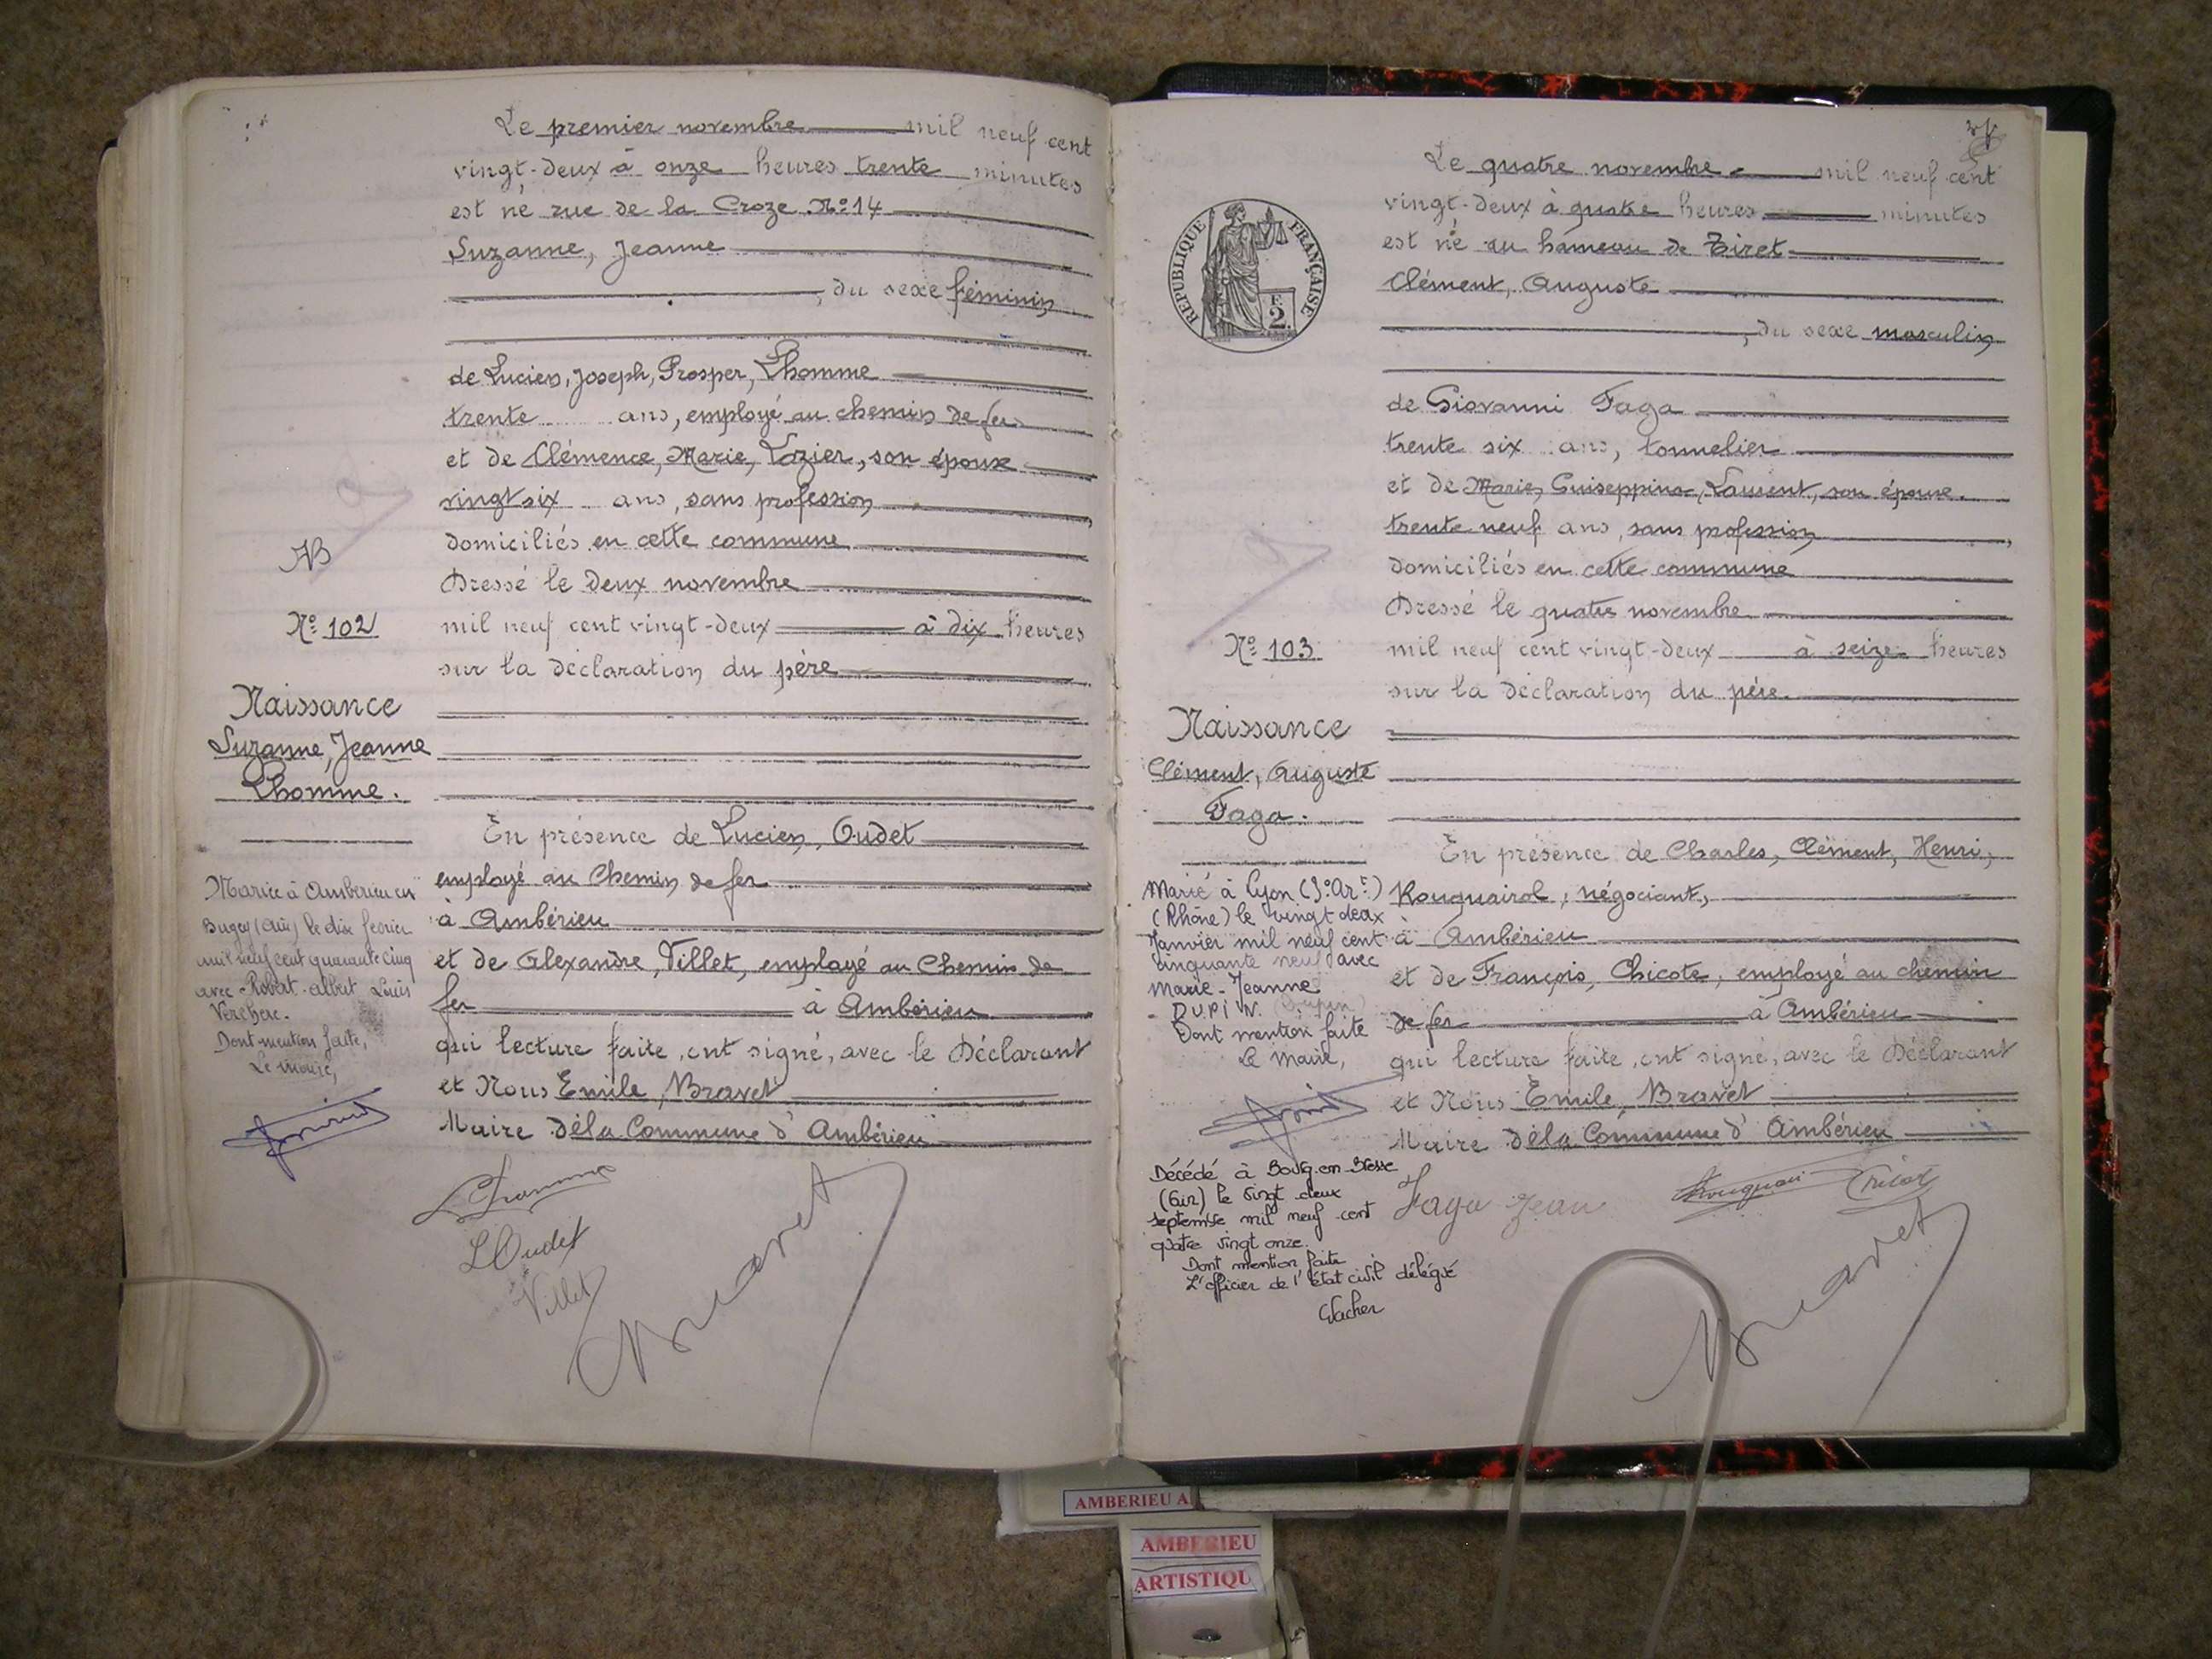 Le premier novembre mil neuf cent
vingt-deux à onze heures trente minutes
est né rue de la Croze Nº 14
Suzanne, Jeanne
, du sexe féminin
de Lucien, Joseph, Prosper, Lhomme
trente ans, employé au chemin de fer
et de Clémence, Marie, Lozier, son épouse
vingt six ans, sans profession,
domiciliés en cette commune
Dressé le deux novembre
mil neuf cent vingt-deux à dix heures
sur la déclaration du père
En présence de Lucien, Oudet
employé au Chemin de fer
à Ambérieu
et de Alexandre, Villet, employé au Chemin de
fer à Ambérieu
qui lecture faite, ont signé, avec le Déclarant
et Nous Emile, Bravet
Maire de la Commune d'Ambérieu
Lhomme
L Oudet
Villet
Bravet
Nº 102
Naissance
Suzanne, Jeanne
Lhomme.
Mariée à Ambérieu en
Bugey (Ain) le dix février
mil neuf cent quarante cinq
avec Robert Albert Louis
Verchère.
Dont mention faite,
Le maire,
Le quatre novembre mil neuf cent
vingt-deux à quatre heures minutes
est né au hameau de Tiret
Clément, Auguste
, du sexe masculin
de Giovanni Faga
trente six ans, tonnelier
et de Marie, Guiseppina, Laurent, son épouse.
trente neuf ans, sans profession,
domiciliés en cette commune
Dressé le quatre novembre
mil neuf cent vingt-deux à seize heures
sur la déclaration du père.
En présence de Charles, Clément, Henri,
Rouquairol, négociant,
à Ambérieu
et de François, Chicote, employé au chemin
de fer à Ambérieu
qui lecture faite, ont signé, avec le Déclarant
et Nous Emile, Bravet
Maire de la Commune d'Ambérieu
Faga Jean
Bravet
RÉPUBLIQUE FRANÇAISE
F.
2.
Nº 103
Naissance
Clément, Auguste
Faga.
Marié à Lyon (3º Art)
(Rhône) le vingt deux
Janvier mil neuf cent
cinquante neuf avec
Marie-Jeanne
DUPIN. (Dupin)
Dont mention faite
Le Maire,
Décédé à Bourg-en-Bresse
(Ain) le vingt deux
septembre mil neuf cent
quatre vingt onze.
Dont mention faite
L'officier de l'état civil délégué
AMBERIEU A
AMBERIEU
ARTISTIQU